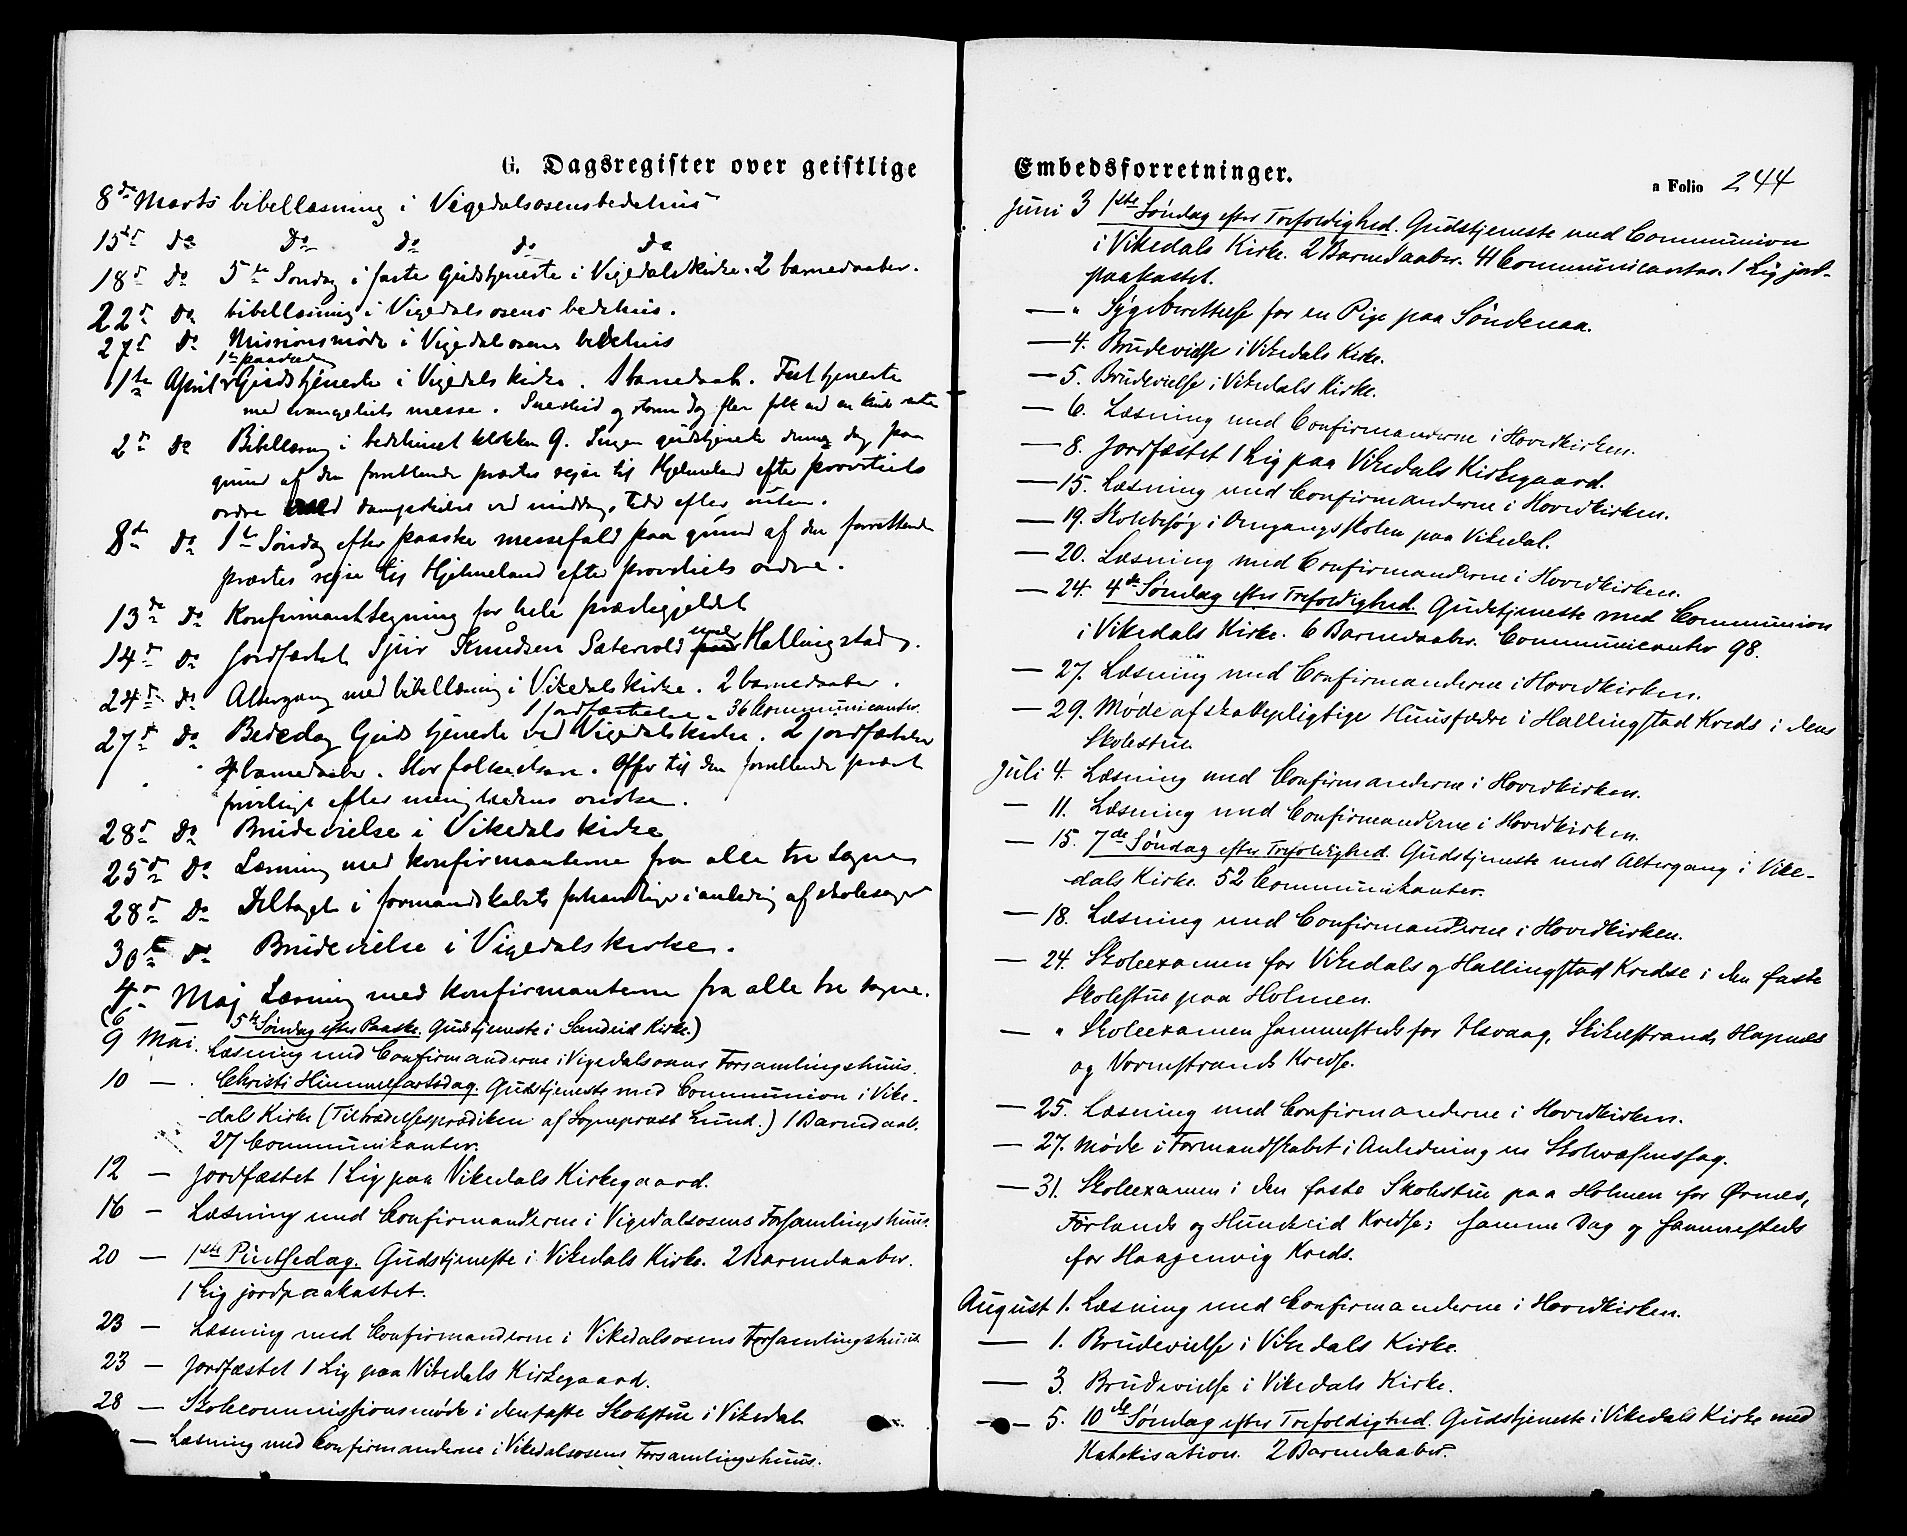 G. Dagsregister over geistlige
8de Marts bibellæsning i Vigedalsosens bedehus
15de do Do do do do
18de do 5te Søndag i faste Gudstjeneste i Vigedals kirke. 2 barnedaaber.
22de do bibellæsning i Vigedalsosens bedehus.
27de do Missionsmøde i Vigedalsosens bedehus
1ste paaskedag
1ste April Gudstjeneste i Vigedals kirke. 1 barnedaab. Festtjeneste
med evangeliets messe. Snestid og storm
2den do Bibellæsning i bedehuset klokken 9. Ingen gudstjeneste denne dag, paa
grund af den forrettende præstes rejse til Hjelmeland efter provstiets
ordre med dampskibe ved middags tide efter
8de do 1ste Søndag efter paaske messefald paa grund af den forrettende
præstes rejse til Hjelmeland efter provstiets ordre.
13de do Konfirmanttegning for hele præstegjeldet
14de do Jordfæstet Sjur Knudsen Sætervold under Hallingstad.
24de do Altergang med bibellæsning i Vikedals kirke. 2 barnedaaber.
1 jordfæstelse. 36 Communicanter.
27de do Bededag Gudstjeneste ved Vigedals kirke. 2 jordfæstelser
barnedaaber. Stor folkedom. Offer til den forrettende præst
frivilligt efter menighedens ønske.
28de do Brudevielse i Vikedals kirke
25de do Læsning med konfirmanterne fra alle tre sogne
28de do Deltaget i formandskabets forhandlinger i anledning af skolesager
30te do Brudevielse i Vigedals kirke.
4de Maj Læsning med konfirmanterne fra alle tre sogne.
(6 5te Søndag efter Paaske. Gudstjeneste i Sandeid Kirke.)
9 Mai. Læsning med Confirmanderne i Vigedalsosens Forsamlingshuus.
10 — Christi Himmelfartsdag. Gudstjeneste med Communion i Vike-
-dals Kirke (Tiltrædelsesprædiken af Sognepræst Lund.) 1 Barnedaab.
27 Communikanter.
12 — Jordfæstet 1 Lig paa Vikedals Kirkegaard.
16 — Læsning med Confirmanderne i Vigedalsosens Forsamlingshuus.
20 — 1ste Pintsedag. Gudstjeneste i Vikedals Kirke. 2 Barnedaaber.
1 Lig jordpaakastet.
23 — Læsning med Confirmanderne i Vikedalsosens Forsamlingshuus.
23 — Jordfæstet 1 Lig paa Vikedals Kirkegaard.
28 — Skolecommissionsmøde i den faste Skolestue i Vikedal
— Læsning med Confirmanderne i Vikedalsosens Forsamlingshuus.
Embedsforretninger.
a Folio 244
Juni 3 1ste Søndag efter Trefoldighed. Gudstjeneste med Communion
i Vikedals Kirke. 2 Barnedaaber. 41 Communicanter. 1 Lig jord-
paakastet.
— " Sygeberettelse for en Pige paa Søndenaa.
— 4. Brudevielse i Vikedals Kirke.
— 5. Brudevielse i Vikedals Kirke.
— 6. Læsning med Confirmanderne i Hovedkirken.
— 8. Jordfæstet 1 Lig paa Vikedals Kirkegaard.
— 15. Læsning med Confirmanderne i Hovedkirken.
— 19. Skolebesøg i Omgangsskolen paa Vikedal.
— 20. Læsning med Confirmanderne i Hovedkirken.
— 24. 4de Søndag efter Trefoldighed. Gudstjeneste med Communion
i Vikedals Kirke. 6 Barnedaaber. Communicanter 98.
— 27. Læsning med Confirmanderne i Hovedkirken.
— 29. Møde af skatepligtige Huusfædre i Hallingstad Kreds i dens
Skolestue.
Juli 4. Læsning med Confirmanderne i Hovedkirken.
— 11. Læsning med Confirmanderne i Hovedkirken.
— 15. 7de Søndag efter Trefoldighed. Gudstjeneste med Altergang i Vike-
dals Kirke. 52 Communikanter.
— 18. Læsning med Confirmanderne i Hovedkirken.
— 24. Skoleexamen for Vikedals og Hallingstad Kredse i den faste
Skolestue paa Holmen.
— " Skoleexamen sammesteds for Ilsvaag, Skikelstrands, Hapnæs
og Vormestrands Kredse.
— 25. Læsning med Confirmanderne i Hovedkirken.
— 27. Møde i Formandskabet i Anledning en Skolevæsenssag.
— 31. Skoleexamen i den faste Skolestue paa Holmen for Ørnes,
Førlands og Hundseid Kredse; samme Dag og sammesteds
for Haajenvig Kreds.
August 1. Læsning med Confirmanderne i Hovedkirken.
— 1. Brudevielse i Vikedals Kirke.
— 3. Brudevielse i Vikedals Kirke.
— 5. 10de Søndag efter Trefoldighed. Gudstjeneste i Vikedals Kirke med
Katekisation. 2 Barnedaaber.